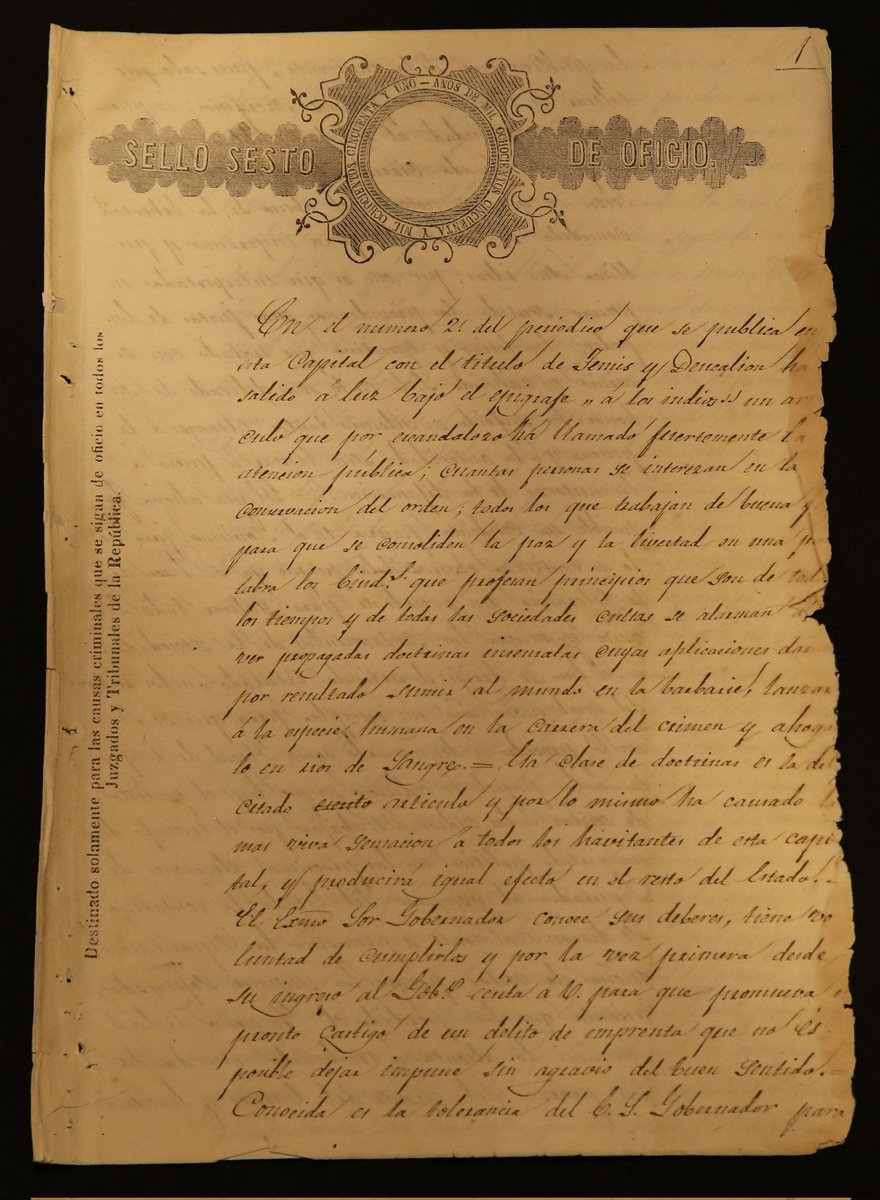 1
SELLO SESTO DE OFICIO.
AÑOS DE MIL OCHOCIENTOS CINCUENTA Y MIL OCHOCIENTOS CINCUENTA Y UNO
Destinado solamente para las causas criminales que se sigan de oficio en todos los
Juzgados y Tribunales de la República.
En el numero 2º del periodico que se publica en
esta Capital con el titulo de Temis y Deucalion ha
salido á luz bajo el epigrafe „á los indios" un ar
culo que por escandaloso ha llamado fuertemente la
atencion pública; cuantas personas se interezan en la
conservacion del orden; todos los que trabajan de buena
para que se consoliden la paz y la livertad en una p
labra los Ciud.s que profesan principios que son de tod
los tiempos y de todas las sociedades cultas se alarman al
ver propagadas doctrinas insensatas cuyas aplicaciones dan
por resultado sumir al mundo en la barbarie, lanzar
á la especie humana en la carrera del crimen y ahogar
lo en rios de Sangre. = Esa clase de doctrinas es la del
citado escrito articulo y por lo mismo ha causado la
mas viva sensacion á todos los havitantes de esta capi
tal, y producirá igual efecto en el resto del Estado. -
El Exmo Sor Gobernador conoce sus deberes, tiene vo
luntad de cumplirlos y por la vez primera desde
su ingreso al Gob.o escita á V. para que promueva
pronto castigo de un delito de imprenta que no és
posible dejar impune sin agravio del buen sentido.
Conocida es la tolerancia del E. S. Gobernador para